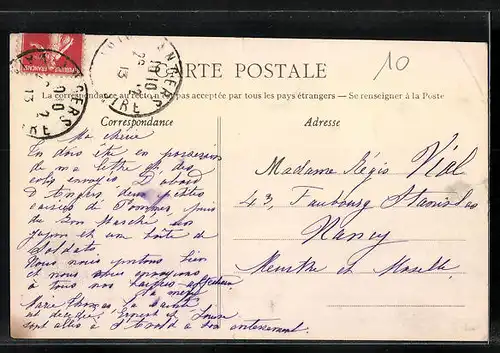 CARTE POSTALE
La correspondance au recto n'est pas acceptée par tous les pays étrangers. — Se renseigner à la Poste
10
Correspondance
Adresse
Ma chérie
Tu dois être en possession
de ma lettre et des
colis envoyés D'abord
deux petites
caisses de Pommes, puis
un
jupon et une boîte de
Soldats
Nous nous portons bien
et nous vous envoyons
à tous nos
ta mère
Marie Thérèse
est décédée Ernest et Louise
sont allés à son enterrement.
Madame Régis Vial
43, Faubourg Stanislas
Nancy
Meurthe et Moselle
ANGERS